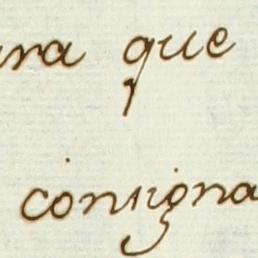 ara que
consigna